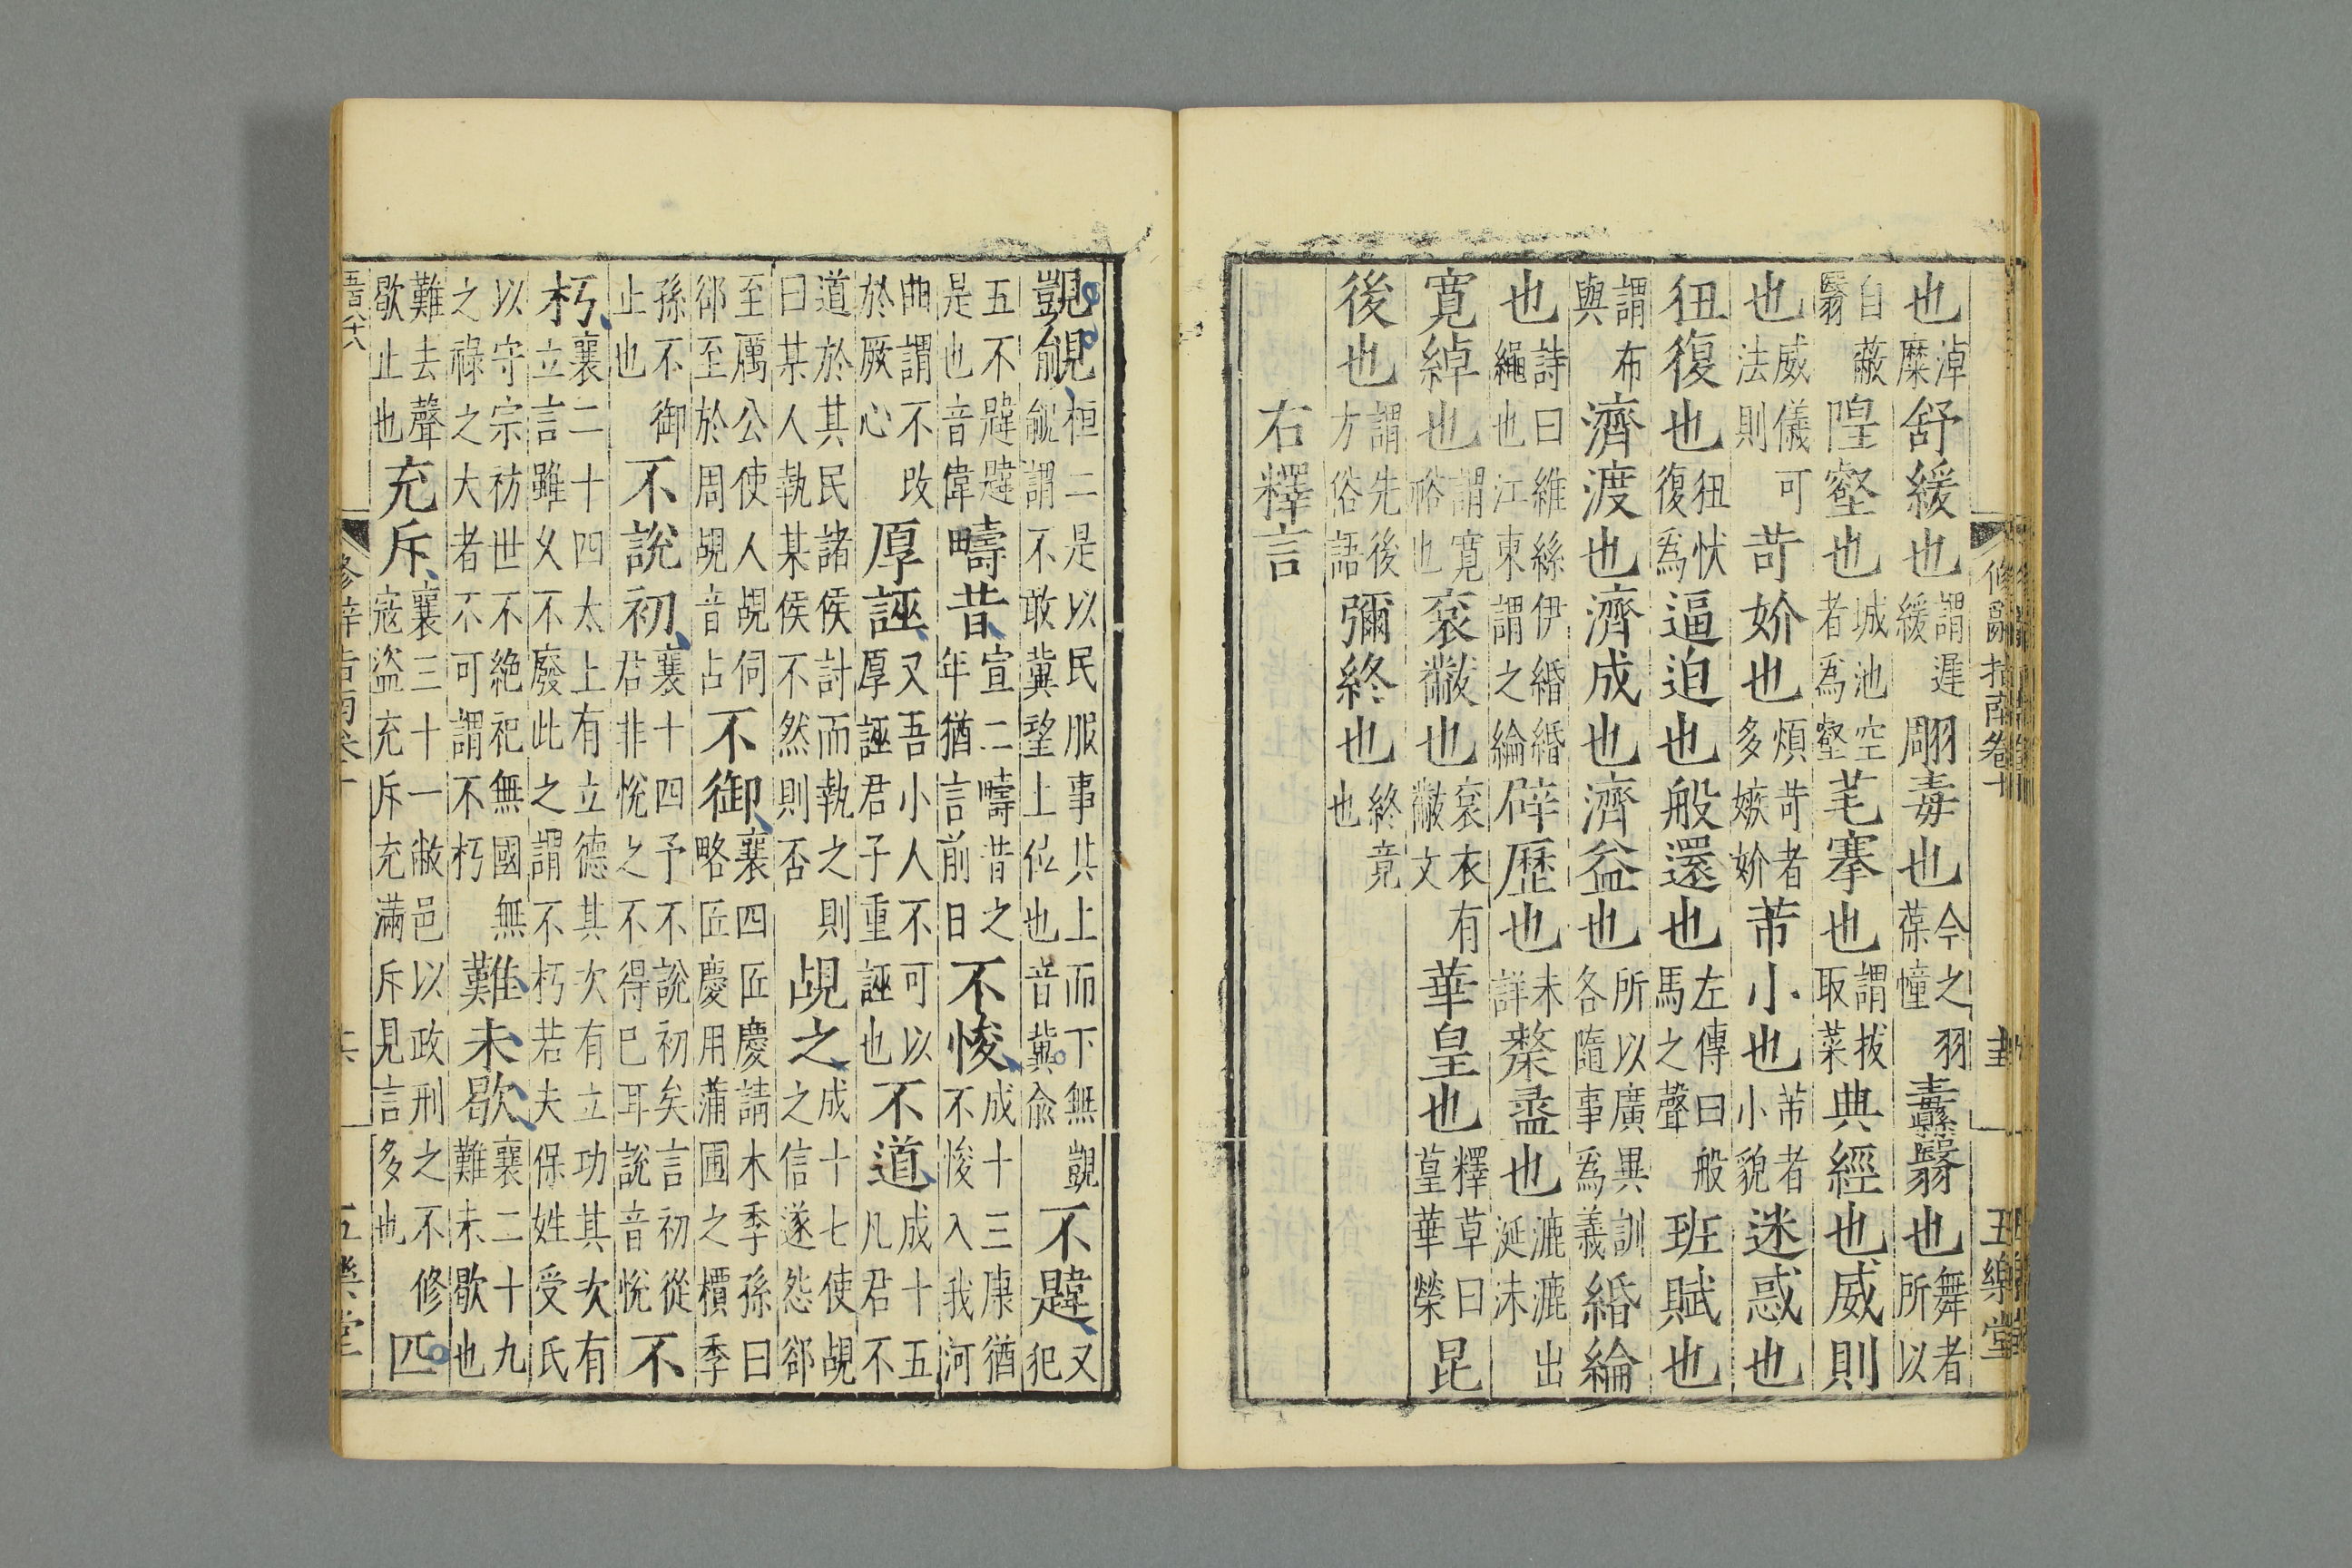 修辭指南卷十 五樂堂
也淖糜舒緩也謂遲緩翢毒也今之羽葆憧纛翳也舞者所以
自蔽翳隍壑也城池空者爲壑芼搴也謂拔取菜典經也威則
也威儀可法則苛妎也煩苛者多嫉妎芾小也芾者小貌迷惑也
狃復也狃忕復爲逼迫也般還也左傳曰般馬之聲班賦也
謂布與濟渡也濟成也濟益也所以廣異訓各隨事爲義緍綸
也詩曰維絲伊緍緍繩也江東謂之綸辟歷也未詳漦盝也漉漉出涎沫
寛綽也謂寛裕也袞黻也袞衣有黻文華皇也釋草曰葟華榮昆
後也謂先後方俗語彌終也終竟也
右釋言
覬覦桓二是以民服事其上而下無覬覦謂不敢冀望上位也音冀俞不韙又犯
五不韙韙是也音偉疇昔宣二疇昔之年猶言前日不悛成十三康猶不悛入我河
曲謂不改於厥心厚誣又吾小人不可以厚誣君子重誣也不道成十五凡君不
道於其民諸侯討而執之則曰某人執某侯不然則否覘之成十七使覘之信遂怨郤
至厲公使人覘伺郤至於周覘音占不御襄四匠慶請木季孫曰略匠慶用蒲圃之檟季
孫不御止也不說初襄十四予不說初矣言初從君非悅之不得已耳說音悅不
朽襄二十四太上有立德其次有立功其次有立言雖久不廢此之謂不朽若夫保姓受氏
以守宗祊世不絶祀無國無之祿之大者不可謂不朽難未歇襄二十九難未歇也
難去聲歇止也充斥襄三十一敝邑以政刑之不修寇盜充斥充滿斥見言多也匹
五樂堂